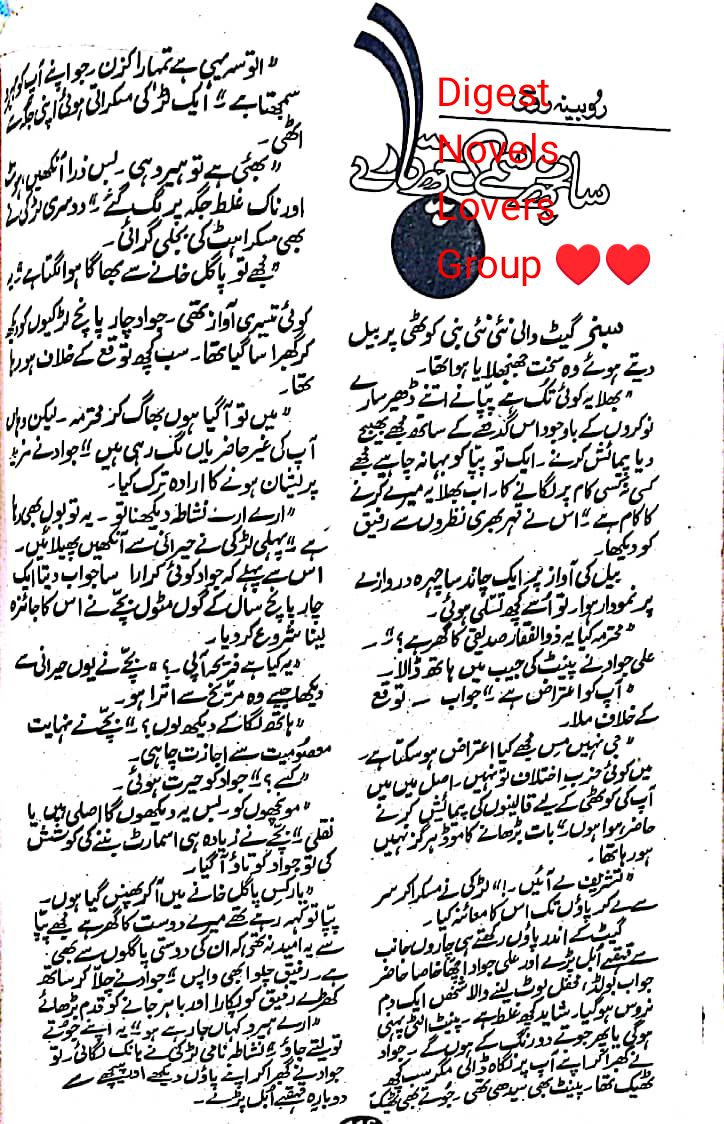 روبینہ
Digest
Novels
Lovers
Group ❤❤
سبز گیٹ والی نئی نئی بنی کوٹھی پر بیل
دیتے ہوئے وہ سخت جھنجھلایا ہوا تھا۔
"بھلا یہ کوئی تک ہے پپا نے اتنے ڈھیر سارے
نوکروں کے باوجود اس گدھے کے ساتھ مجھے بھیج
دیا پیمائش کرنے۔ ایک تو پپا کو بہانہ چاہیے مجھے
کسی نہ کسی کام پر لگانے کا۔ اب بھلا یہ میرے کرنے
کا کام ہے" اس نے قہر بھری نظروں سے رفیق
کو دیکھا۔
بیل کی آواز پر ایک چاند سا چہرہ دروازے
پر نمودار ہوا۔ تو اُسے کچھ تسلی ہوئی۔
"محترمہ کیا یہ ذوالفقار صدیقی کا گھر ہے؟"۔
علی جواد نے پینٹ کی جیب میں ہاتھ ڈالا۔
"آپ کو اعتراض ہے" جواب ۔ توقع
کے خلاف ملا۔
"جی نہیں مس مجھے کیا اعتراض ہو سکتا ہے۔
میں کوئی حزب اختلاف تو نہیں۔ اصل میں میں
آپ کی کوٹھی کے لیے قالینوں کی پیمائش کرنے
حاضر ہوا ہوں" بات بڑھانے کا موڈ ہرگز نہیں
ہو رہا تھا۔
"تشریف لے آئیں۔!" لڑکی نے مسکرا کر سر
سے لے کر پاؤں تک اس کا معائنہ کیا۔
گیٹ کے اندر پاؤں رکھتے ہی چاروں جانب
سے قہقہے اُبل پڑے اور علی جواد اچھا خاصا حاضر
جواب بولڈ، محفل لوٹ لینے والا شخص ایک دم
نروس ہو گیا۔ شاید کچھ غلط ہے۔ پینٹ الٹی پہنی
ہوگی یا پھر جوتے دو رنگ کے ہوں گے۔ جواد
نے گھبرا کر اپنے آپ پر نگاہ ڈالی مگر سب کچھ
ٹھیک تھا۔ پینٹ بھی سیدھی تھی۔ جوتے بھی ٹھیک
"اتو یہی ہے تمہارا کزن۔ جو اپنے آپ کو
سمجھتا ہے" ایک لڑکی مسکراتی ہوئی اپنی جگہ سے
اٹھی۔
"بھئی ہے تو ہیرو ہی۔ بس ذرا آنکھیں ہونٹ
اور ناک غلط جگہ پر ٹک گئے" دوسری لڑکی نے
بھی مسکراہٹ کی بجلی گرائی۔
"مجھے تو پاگل خانے سے بھاگا ہوا لگتا ہے" یہ
کوئی تیسری آواز تھی۔ جواد چار پانچ لڑکیوں کو دیکھ
کر گھبرا سا گیا تھا۔ سب کچھ توقع کے خلاف ہو رہا
تھا۔
"میں تو آ گیا ہوں بھاگ کر محترمہ۔ لیکن وہاں
آپ کی غیر حاضریاں لگ رہی ہیں" جواد نے مزید
پریشان ہونے کا ارادہ ترک کیا۔
"ارے ارے نشاط دیکھنا تو۔ یہ تو بول بھی رہا
ہے" پہلی لڑکی نے حیرانی سے آنکھیں پھیلائیں۔
اس سے پہلے کہ جواد کوئی کرارا سا جواب دیتا ایک
چار پانچ سال کے گول مٹول بچے نے اس کا جائزہ
لینا شروع کر دیا۔
"یہ کیا ہے فریحہ آپی۔؟" بچے نے یوں حیرانی سے
دیکھا جیسے وہ مریخ سے اترا ہو۔
"ہاتھ لگا کے دیکھ لوں؟" بچے نے نہایت
معصومیت سے اجازت چاہی۔
"کسے؟" جواد کو حیرت ہوئی۔
"مونچھوں کو۔ بس یہ دیکھوں گا اصلی ہیں یا
نقلی" بچے نے زیادہ ہی اسمارٹ بننے کی کوشش
کی تو جواد کو تاؤ آ گیا۔
"یار کس پاگل خانے میں آ کر پھنس گیا ہوں۔
پپا تو کہہ رہے تھے میرے دوست کا گھر ہے مجھے پپا
سے یہ امید نہ تھی کہ ان کی دوستی پاگلوں سے بھی
ہے۔ رفیق چلو ابھی واپس" جواد نے چلا کر ساتھ
کھڑے رفیق کو پکارا اور باہر جانے کو قدم بڑھائے
"ارے ہیرو کہاں جا رہے ہو" یہ اپنے جوتے
تو لیتے جاؤ" نشاط نامی لڑکی نے ہانک لگائی۔ تو
جواد نے گھبرا کر اپنے پاؤں دیکھے اور پیچھے سے
دوبارہ قہقہے اُبل پڑے۔